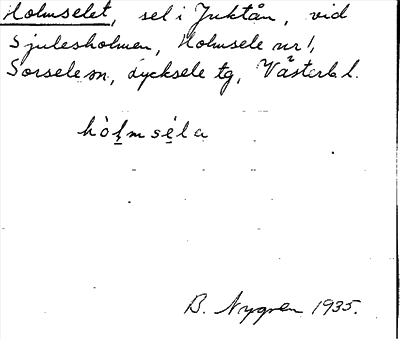 Holmselet, sel i Juktån, vid
Sjulesholmen, Holmsele nr 1,
Sorsele sn, Lycksele tg, Västerb l.
hòḷmsẹ́la
B. Nygren 1935.